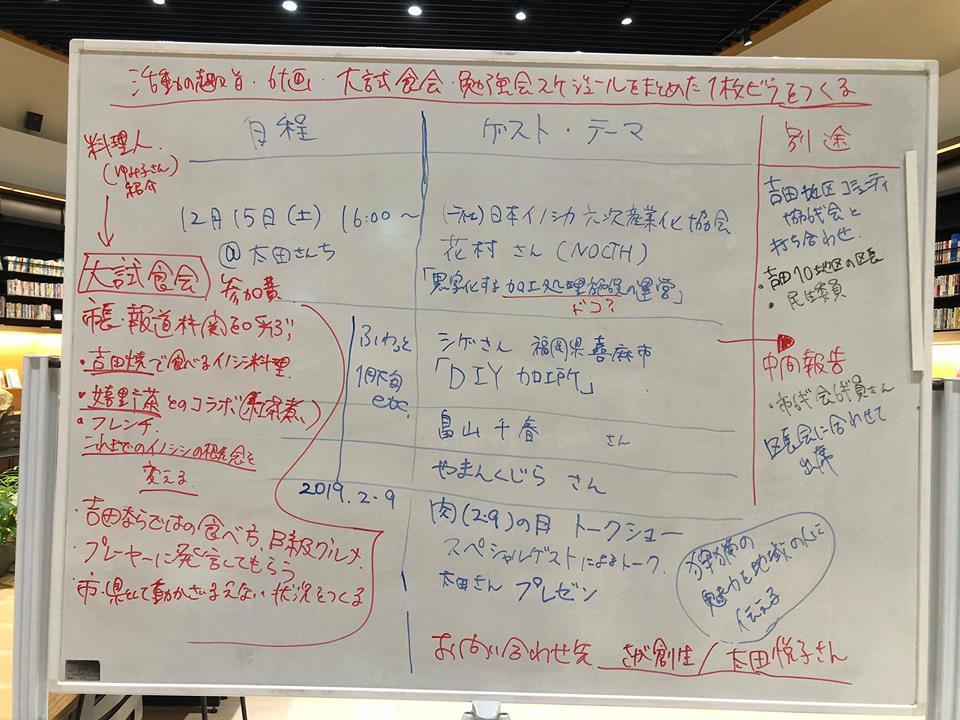 活動の趣旨・計画・大試食会・勉強会スケジュールをまとめた1枚ビラをつくる
料理人
(ゆみ子さん)
紹介
大試食会 参加費
市長・報道機関を呼ぶ!
・吉田焼で食べるイノシシ料理
・嬉野茶とのコラボ(紅茶煮)
・フレンチ
これまでのイノシシの概念を
変える
・吉田ならではの食べ方、B級グルメ
・プレーヤーに発言してもらう
・市・県として動かざるえない状況をつくる
日程
12月15日(土) 16:00〜
@太田さんち
ふわっと
1月下旬
etc.
2019.2.9
ゲスト・テーマ
(一社)日本イノシカ六次産業化協会
花村さん(NOCTH)
「黒字化する加工処理施設の運営」
ドコ?
シゲさん 福岡県嘉麻市
「DIY加工所」
畠山千春 さん
やまんくじら さん
肉(2.9)の日 トークショー
スペシャルゲストによるトーク
太田さん プレゼン
別途
吉田地区コミュニティ
協議会と
打ち合わせ
・吉田10地区の区長
・民生委員
中間報告
・市議会議員さん
区長会に合わせて
出席
狩猟の
魅力を地域の人に
伝える
お問い合わせ先 さが創生/太田悦子さん